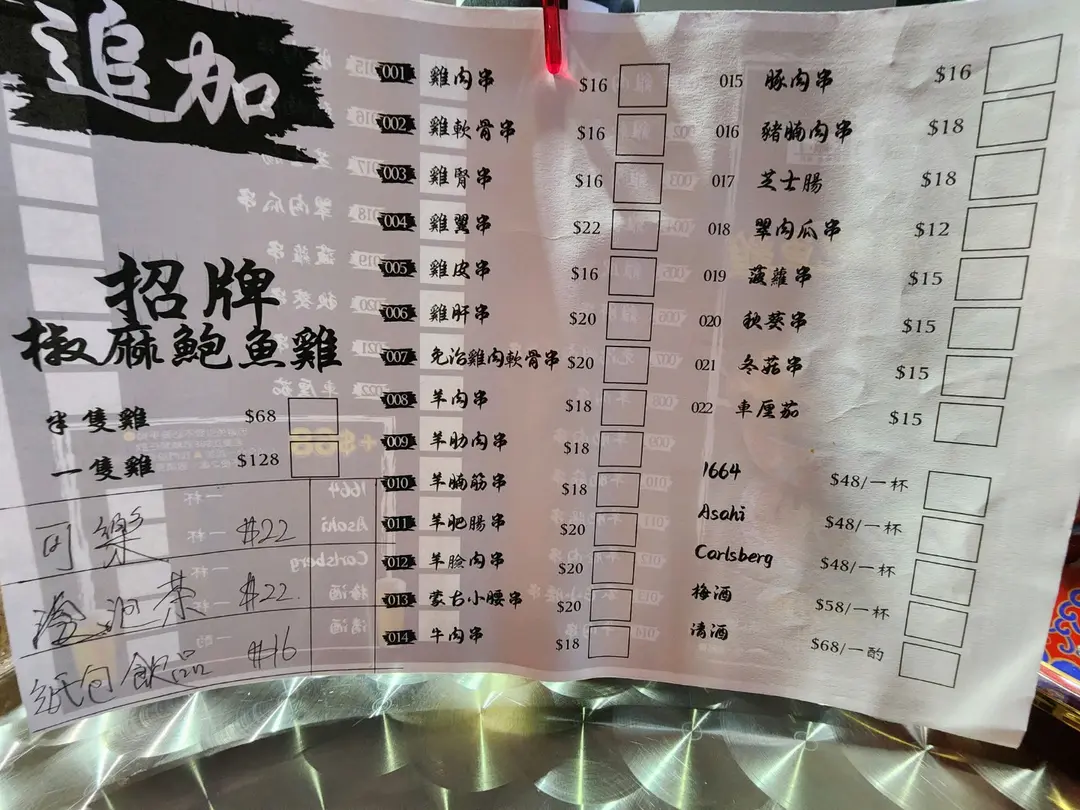 追加
招牌
椒麻鮑魚雞
半隻雞 $68
一隻雞 $128
可樂 $22
$22
紙包飲品 $16
001 雞肉串 $16
002 雞軟骨串 $16
003 雞腎串 $16
004 雞翼串 $22
005 雞皮串 $16
006 雞肝串 $20
007 免治雞肉軟骨串 $20
008 羊肉串 $18
009 羊肋肉串 $18
010 羊腩筋串 $18
011 羊肥腸串 $20
012 羊臉肉串 $20
013 蒙古小腰串 $20
014 牛肉串 $18
015 豚肉串 $16
016 豬腩肉串 $18
017 芝士腸 $18
018 翠肉瓜串 $12
019 菠蘿串 $15
020 秋葵串 $15
021 冬菇串 $15
022 車厘茄 $15
1664 $48/一杯
Asahi $48/一杯
Carlsberg $48/一杯
梅酒 $58/一杯
清酒 $68/一酌